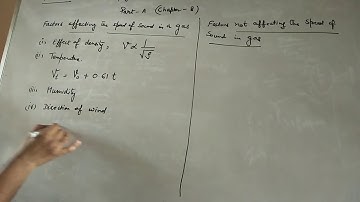 Part - A (Chapter - 8)
Factors affecting the speed of Sound in a gas
(i) Effect of density, V ∝ 1/√ρ
(ii) Temperature
Vt = V0 + 0.61 t
(iii) Humidity
(iv) Direction of wind
Factors not affecting the Speed of
Sound in gas